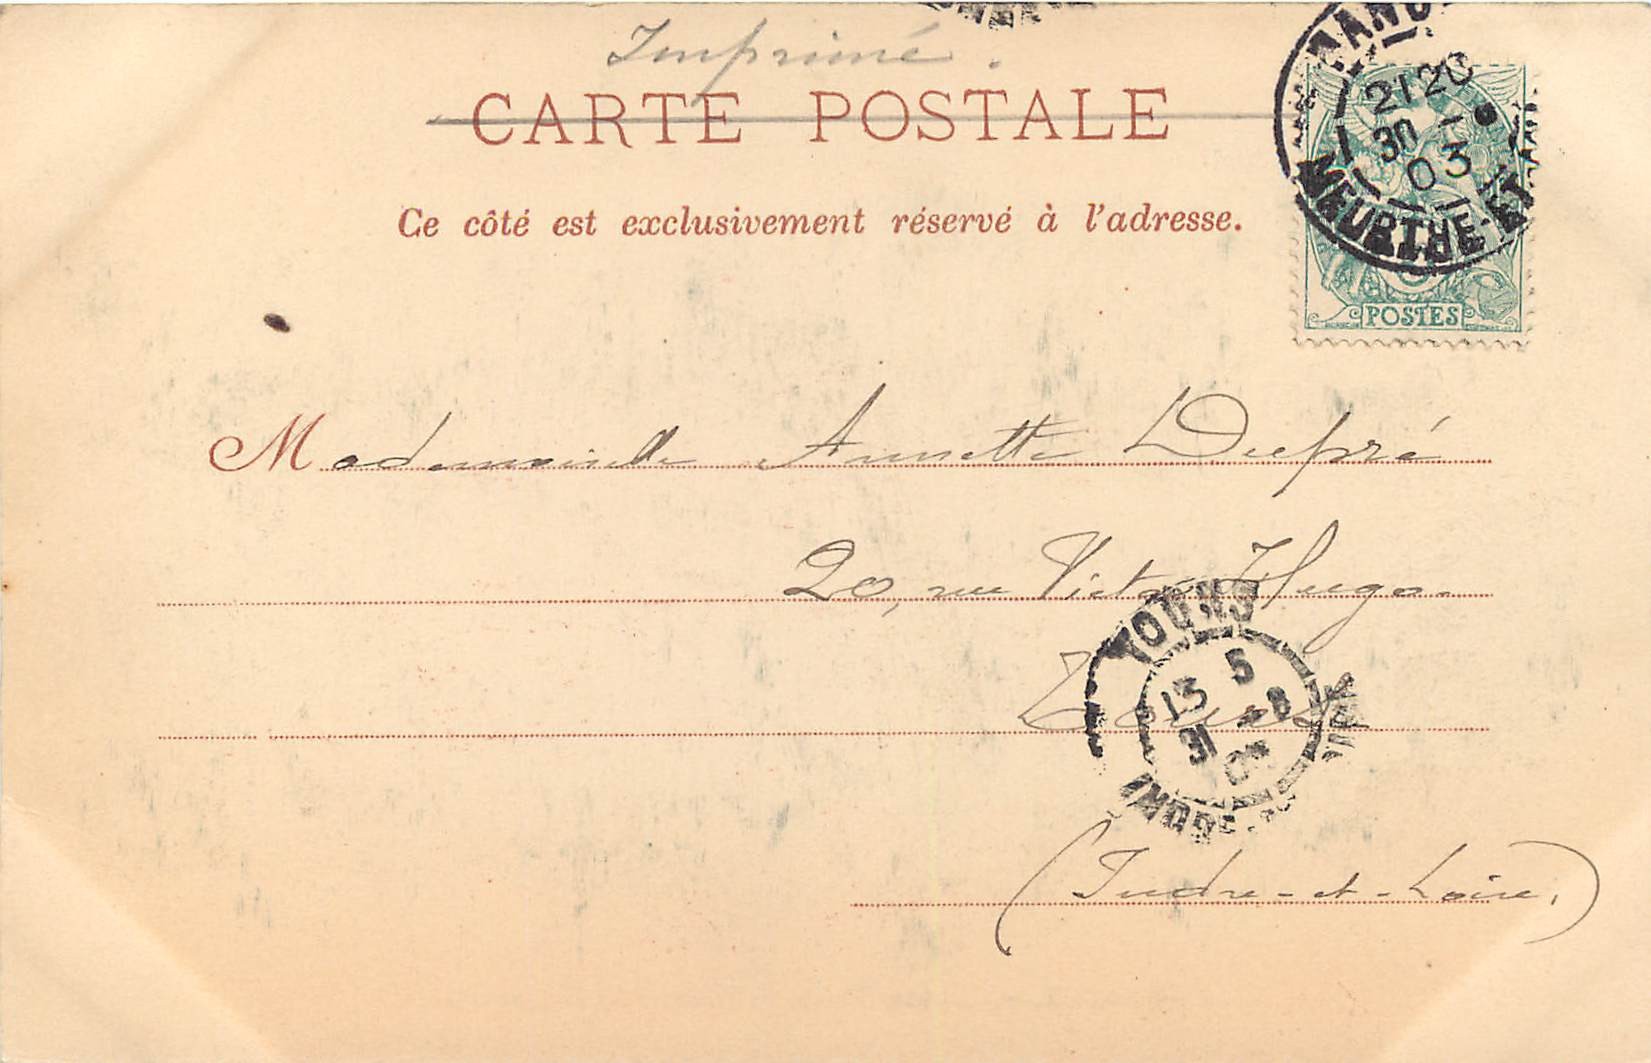 Imprimé.
CARTE POSTALE
Ce côté est exclusivement réservé à l'adresse.
2120
30
03
MEURTHE-ET
POSTES
Mademoiselle Annette Dupré
20, rue Victor Hugo.
Tours
TOURS
13 5
31 -8
INDRE
(Indre-et-Loire.)